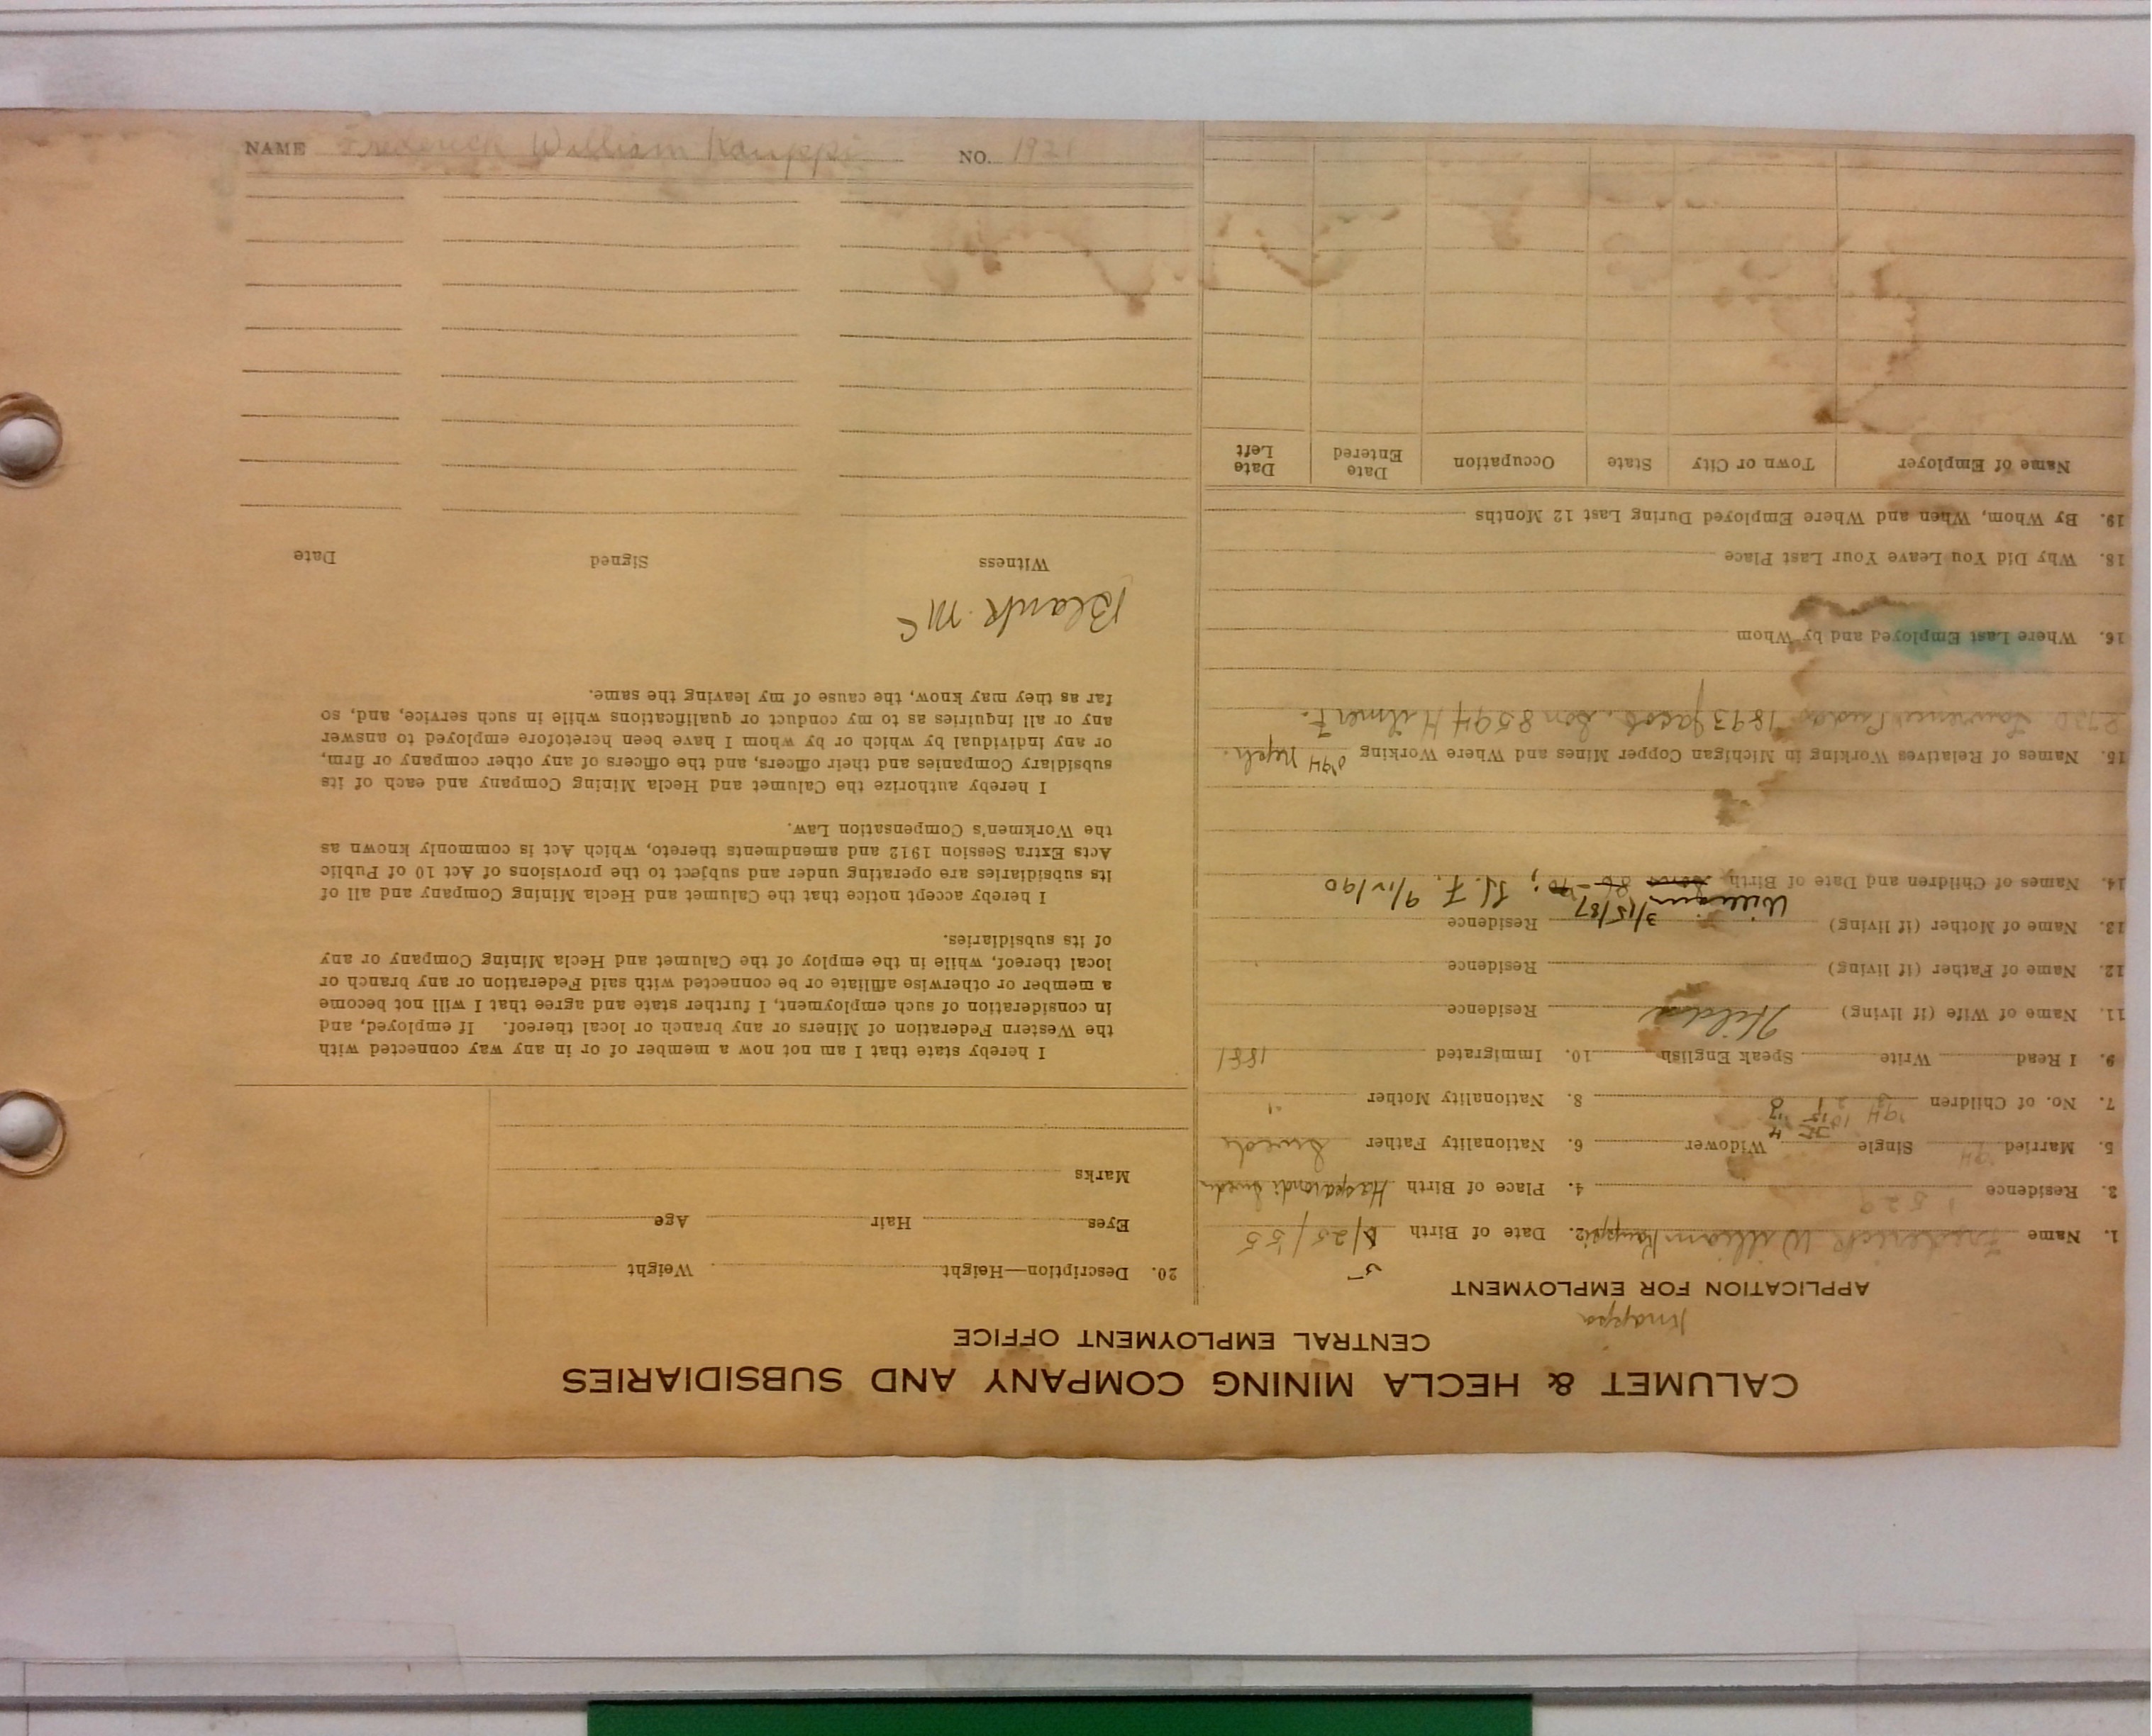 CALUMET & HECLA MINING COMPANY AND SUBSIDIARIES
CENTRAL EMPLOYMENT OFFICE
Knappa
APPLICATION FOR EMPLOYMENT
1. Name Frederick William Kauppi 2. Date of Birth 6/25/55
5
3. Residence 1529 4. Place of Birth
5. Married '94 Single Widower 6. Nationality Father Swede
7. No. of Children '94 8. Nationality Mother "
9. I Read Write Speak English 10. Immigrated 1881
11. Name of Wife (if living) Hilda Residence
12. Name of Father (if living) Residence
13. Name of Mother (if living) Residence
William 3/15/87
14. Names of Children and Date of Birth H. F. 9/12/90
15. Names of Relatives Working in Michigan Copper Mines and Where Working Neph.
Lawrence 1893 Jacob. Son 8594 Hilmer F.
16. Where Last Employed and by Whom
18. Why Did You Leave Your Last Place
19. By Whom, When and Where Employed During Last 12 Months
Name of Employer Town or City State Occupation Date Entered Date Left
20. Description—Height Weight
Eyes Hair Age
Marks
I hereby state that I am not now a member of or in any way connected with
the Western Federation of Miners or any branch or local thereof. If employed, and
in consideration of such employment, I further state and agree that I will not become
a member or otherwise affiliate or be connected with said Federation or any branch or
local thereof, while in the employ of the Calumet and Hecla Mining Company or any
of its subsidiaries.
I hereby accept notice that the Calumet and Hecla Mining Company and all of
its subsidiaries are operating under and subject to the provisions of Act 10 of Public
Acts Extra Session 1912 and amendments thereto, which Act is commonly known as
the Workmen's Compensation Law.
I hereby authorize the Calumet and Hecla Mining Company and each of its
subsidiary Companies and their officers, and the officers of any other company or firm,
or any individual by which or by whom I have been heretofore employed to answer
any or all inquiries as to my conduct or qualifications while in such service, and, so
far as they may know, the cause of my leaving the same.
Blank. Mc
Witness Signed Date
NAME Frederick William Kauppi NO. 1921